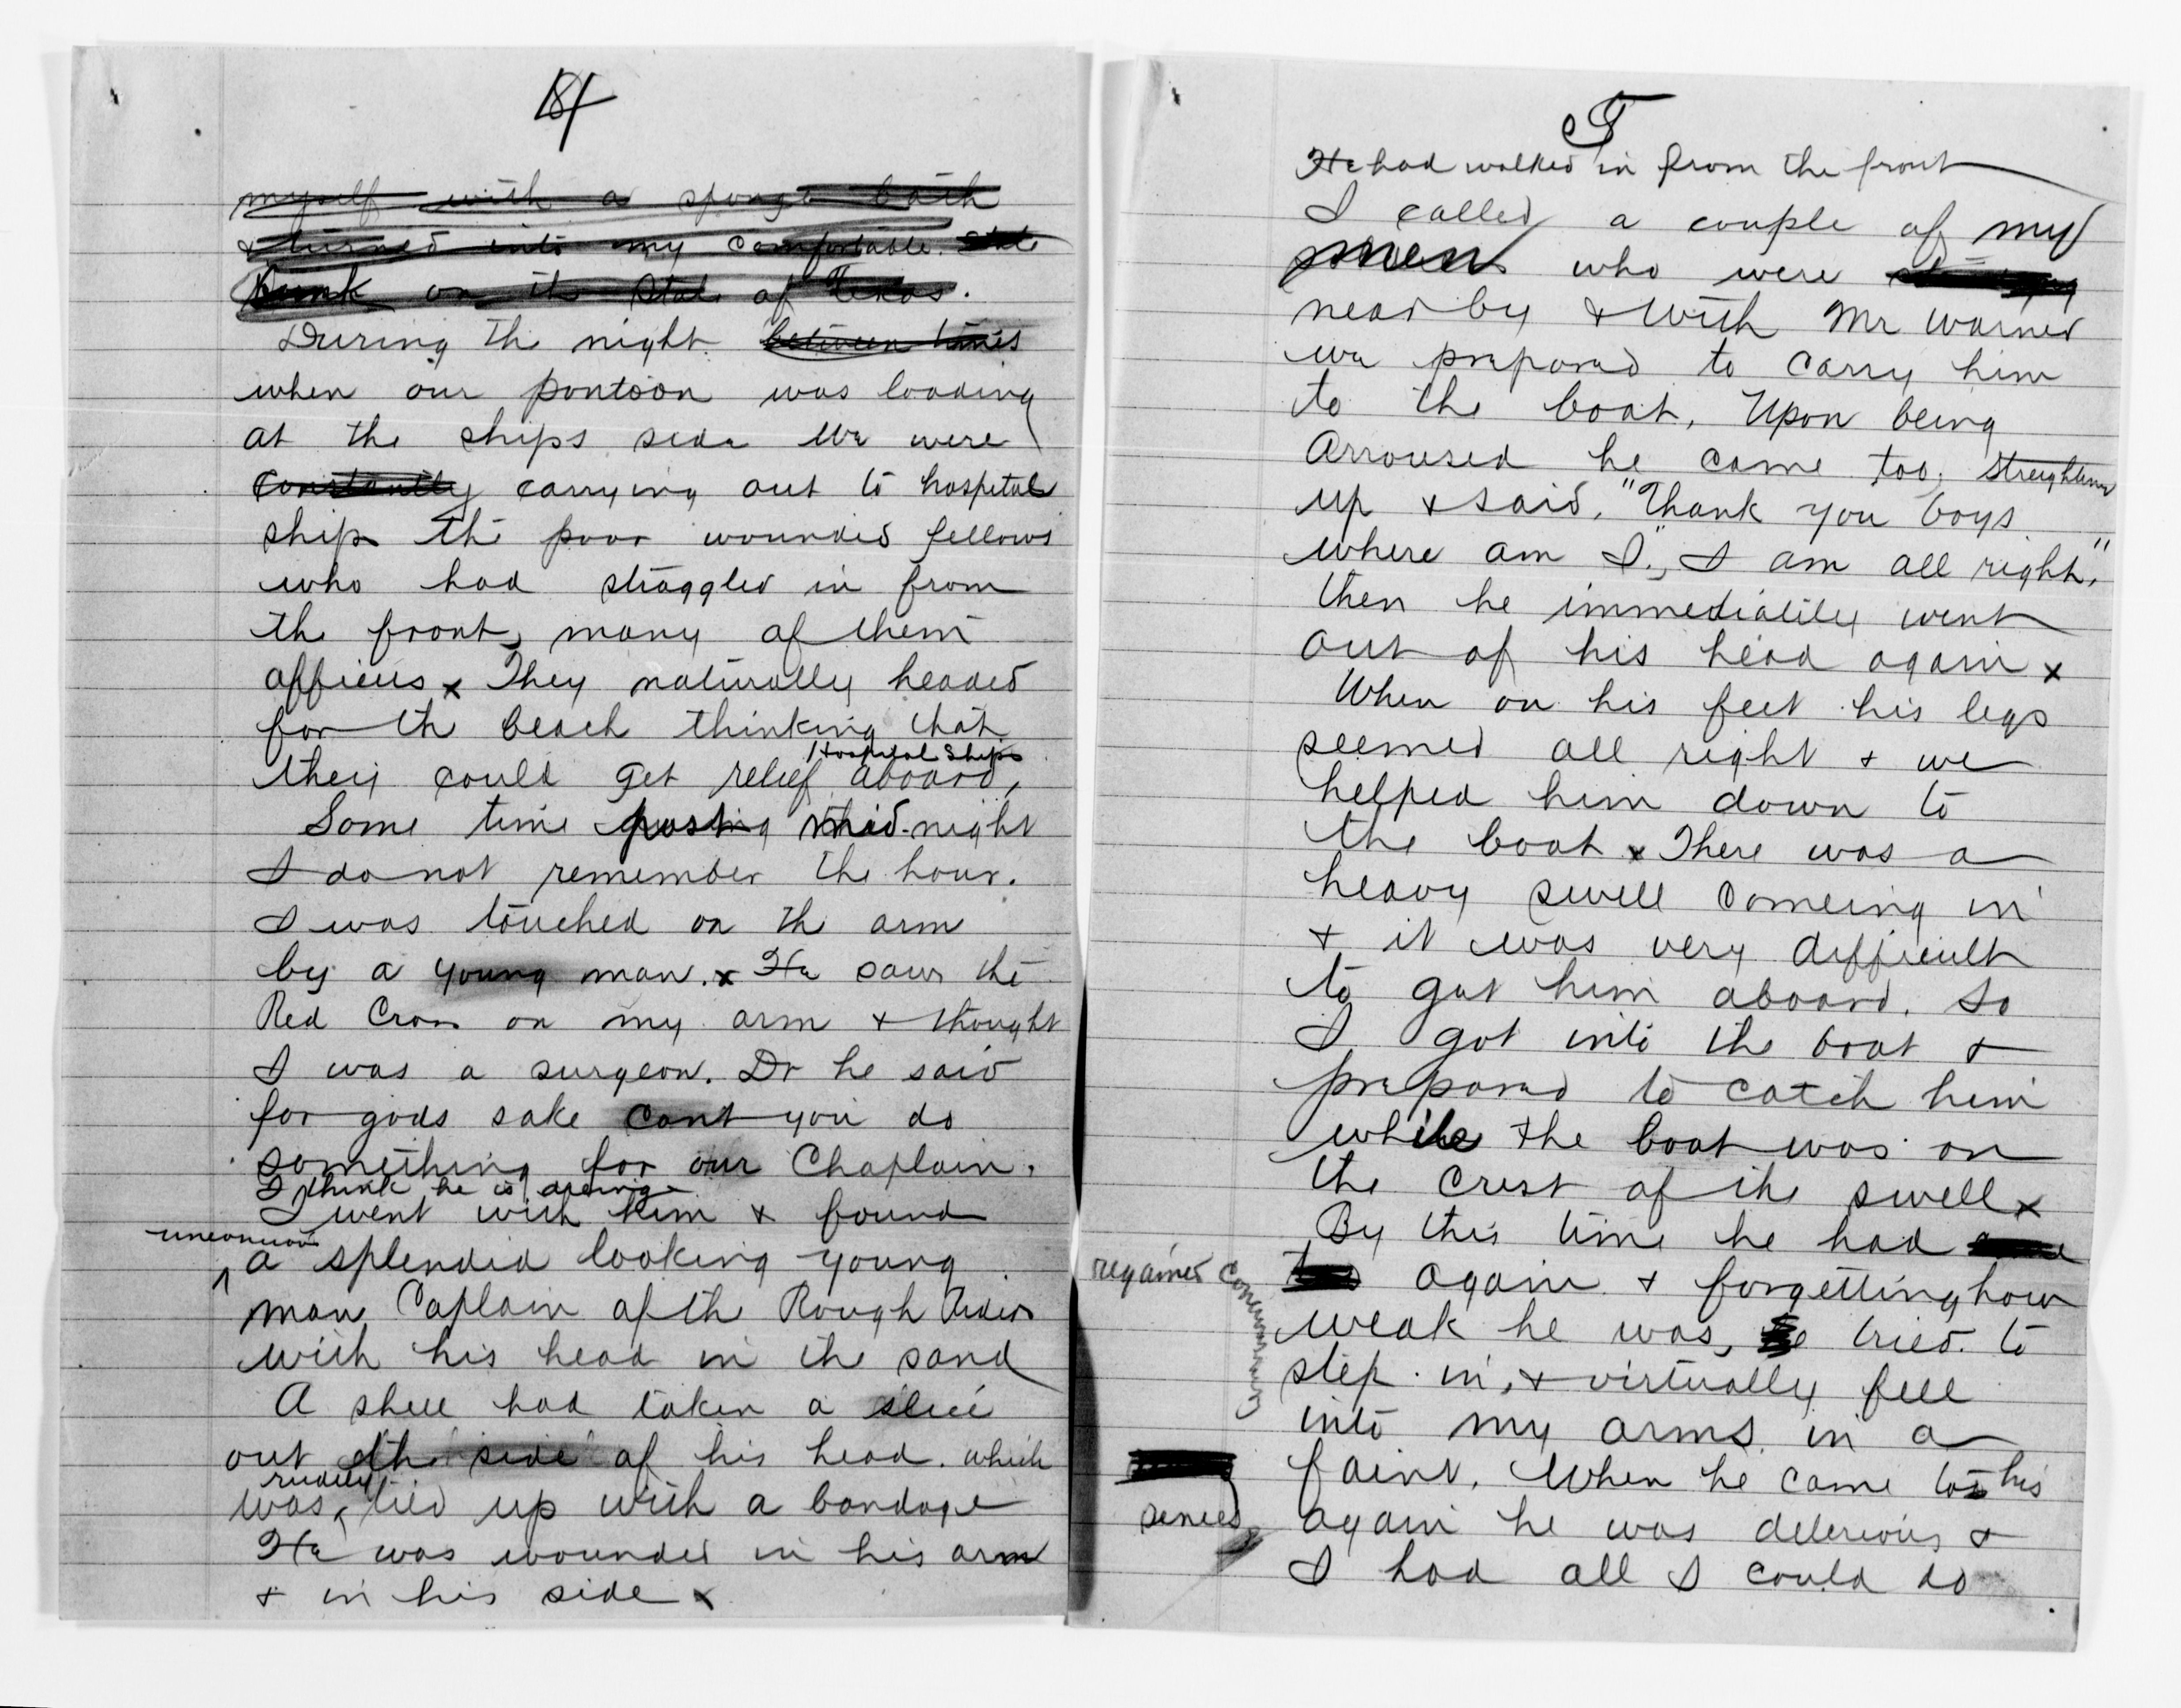 myself with a sponge bath
& turned into my comfortable State
bunk on the State of Texas.
During the night between times
when our pontoon was loading
at the ships side we were
constantly carrying out to hospital
ship the poor wounded fellows
who had straggled in from
the front, many of them
officers x They naturally headed
for the beach thinking that
Hospital Ships
they could get relief aboard,
Some time passing mid-night
I do not remember the hour.
I was touched on the arm
by a young man. x He saw the
Red Cross on my arm & thought
I was a surgeon. Dr he said
for gods sake cant you do
something for our Chaplain.
I think he is dieing
I went with him & found
unconcious
a splendid looking young
man Caplain of the Rough Riders
with his head in the sand
A shell had taken a slice
out the side of his head. which
rudely
was tied up with a bandage
He was wounded in his arm
& in his side x
5
He had walked in from the front
I called a couple of my
men who were
near by & with Mr Warner
we prepared to carry him
to the boat. Upon being
Arroused he came too, streightened
up & said, "Thank you boys
where am I", I am all right."
then he immediatily went
out of his head again x
When on his feet his legs
seemed all right & we
helped him down to
the boat x There was a
heavy swell comeing in
& it was very difficult
to get him aboard. So
I got into the boat &
prepared to catch him
while the boat was on
the crest of the swell x
By this time he had came
regained conciousness
too again & forgetting how
weak he was, he tried to
step in, & virtually fell
into my arms in a
faint. When he came to his
sences again he was delerious &
I had all I could do